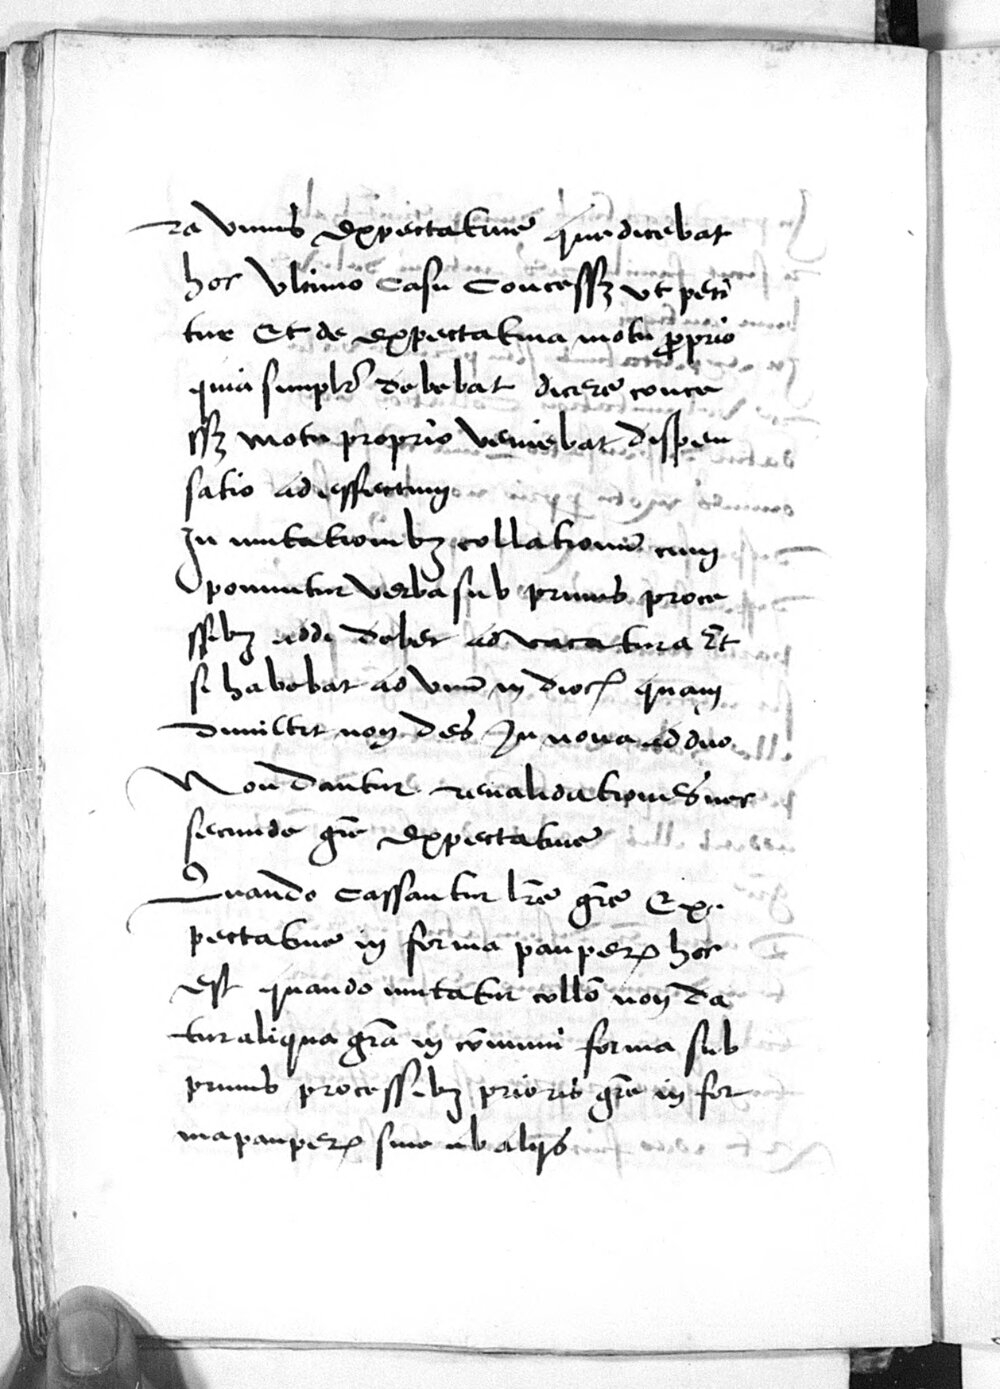 ra vnius expectatiue que dicebat
hoc vltimo casu concessꝫ vt peti
tur Et de expectatiua motu ꝓprio
quia simplr̃ debebat dicere conce
ssꝫ motu proprio veniebat dispen
satio ad effectum
In mutationibꝫ collationũ cum
ponuntur verba sub primis proce
ssibꝫ addi debet ad vacatura Et
si habebat ad vnũ in dioc̃ quam
dimictit non des In noua ad duo
Non dantur reualidationes nec
secunde gr̃e expectatiue
Quando cassantur lr̃e gr̃e Ex
pectatiue in forma pauperꝝ hoc
est quando mutatur collõ non da
tur aliqua gr̃a in cõmuni forma sub
primis processibꝫ prioris gr̃e in for
ma pauperꝝ siue ab alijs